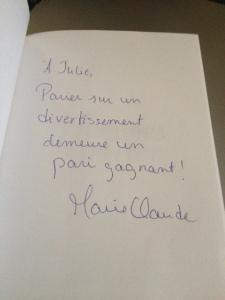 À Julie,
Parier sur un
divertissement
demeure un
pari gagnant !
Marie Claude